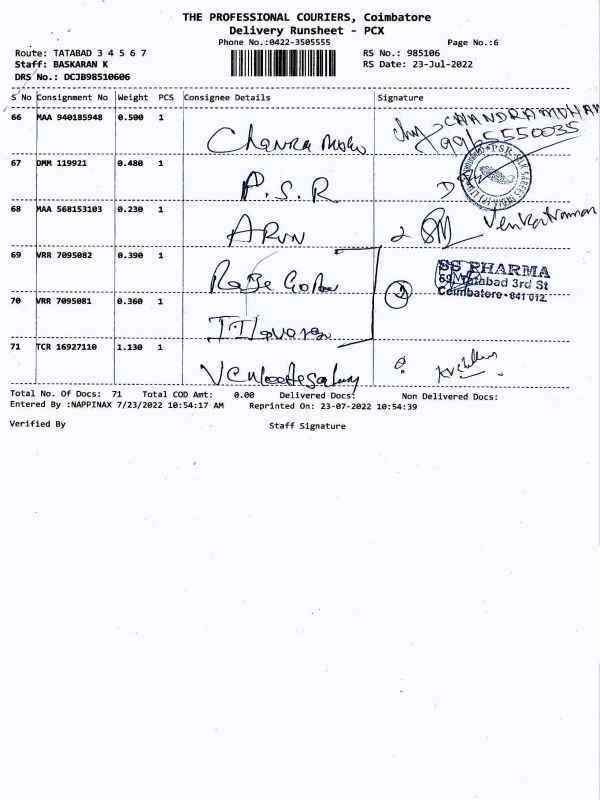 THE PROFESSIONAL COURIERS, Coimbatore
Delivery Runsheet - PCX
Phone No.:0422-3505555 Page No.:6
Route: TATABAD 3 4 5 6 7 RS No.: 985106
Staff: BASKARAN K RS Date: 23-Jul-2022
DRS No.: DCJB98510606
S No Consignment No Weight PCS Consignee Details Signature
66 MAA 940185948 0.500 1
CHANDRAMOHAN
67 DMM 119921 0.480 1
P.S.R
68 MAA 568153103 0.230 1
ARUN 2 Venkatraman
69 VRR 7095082 0.390 1
SS PHARMA
69 Tatabad 3rd St
Coimbatore-641 012.
70 VRR 7095081 0.360 1
2
71 TCR 16927110 1.130 1
Total No. Of Docs: 71 Total COD Amt: 0.00 Delivered Docs: Non Delivered Docs:
Entered By :NAPPINAX 7/23/2022 10:54:17 AM Reprinted On: 23-07-2022 10:54:39
Verified By Staff Signature